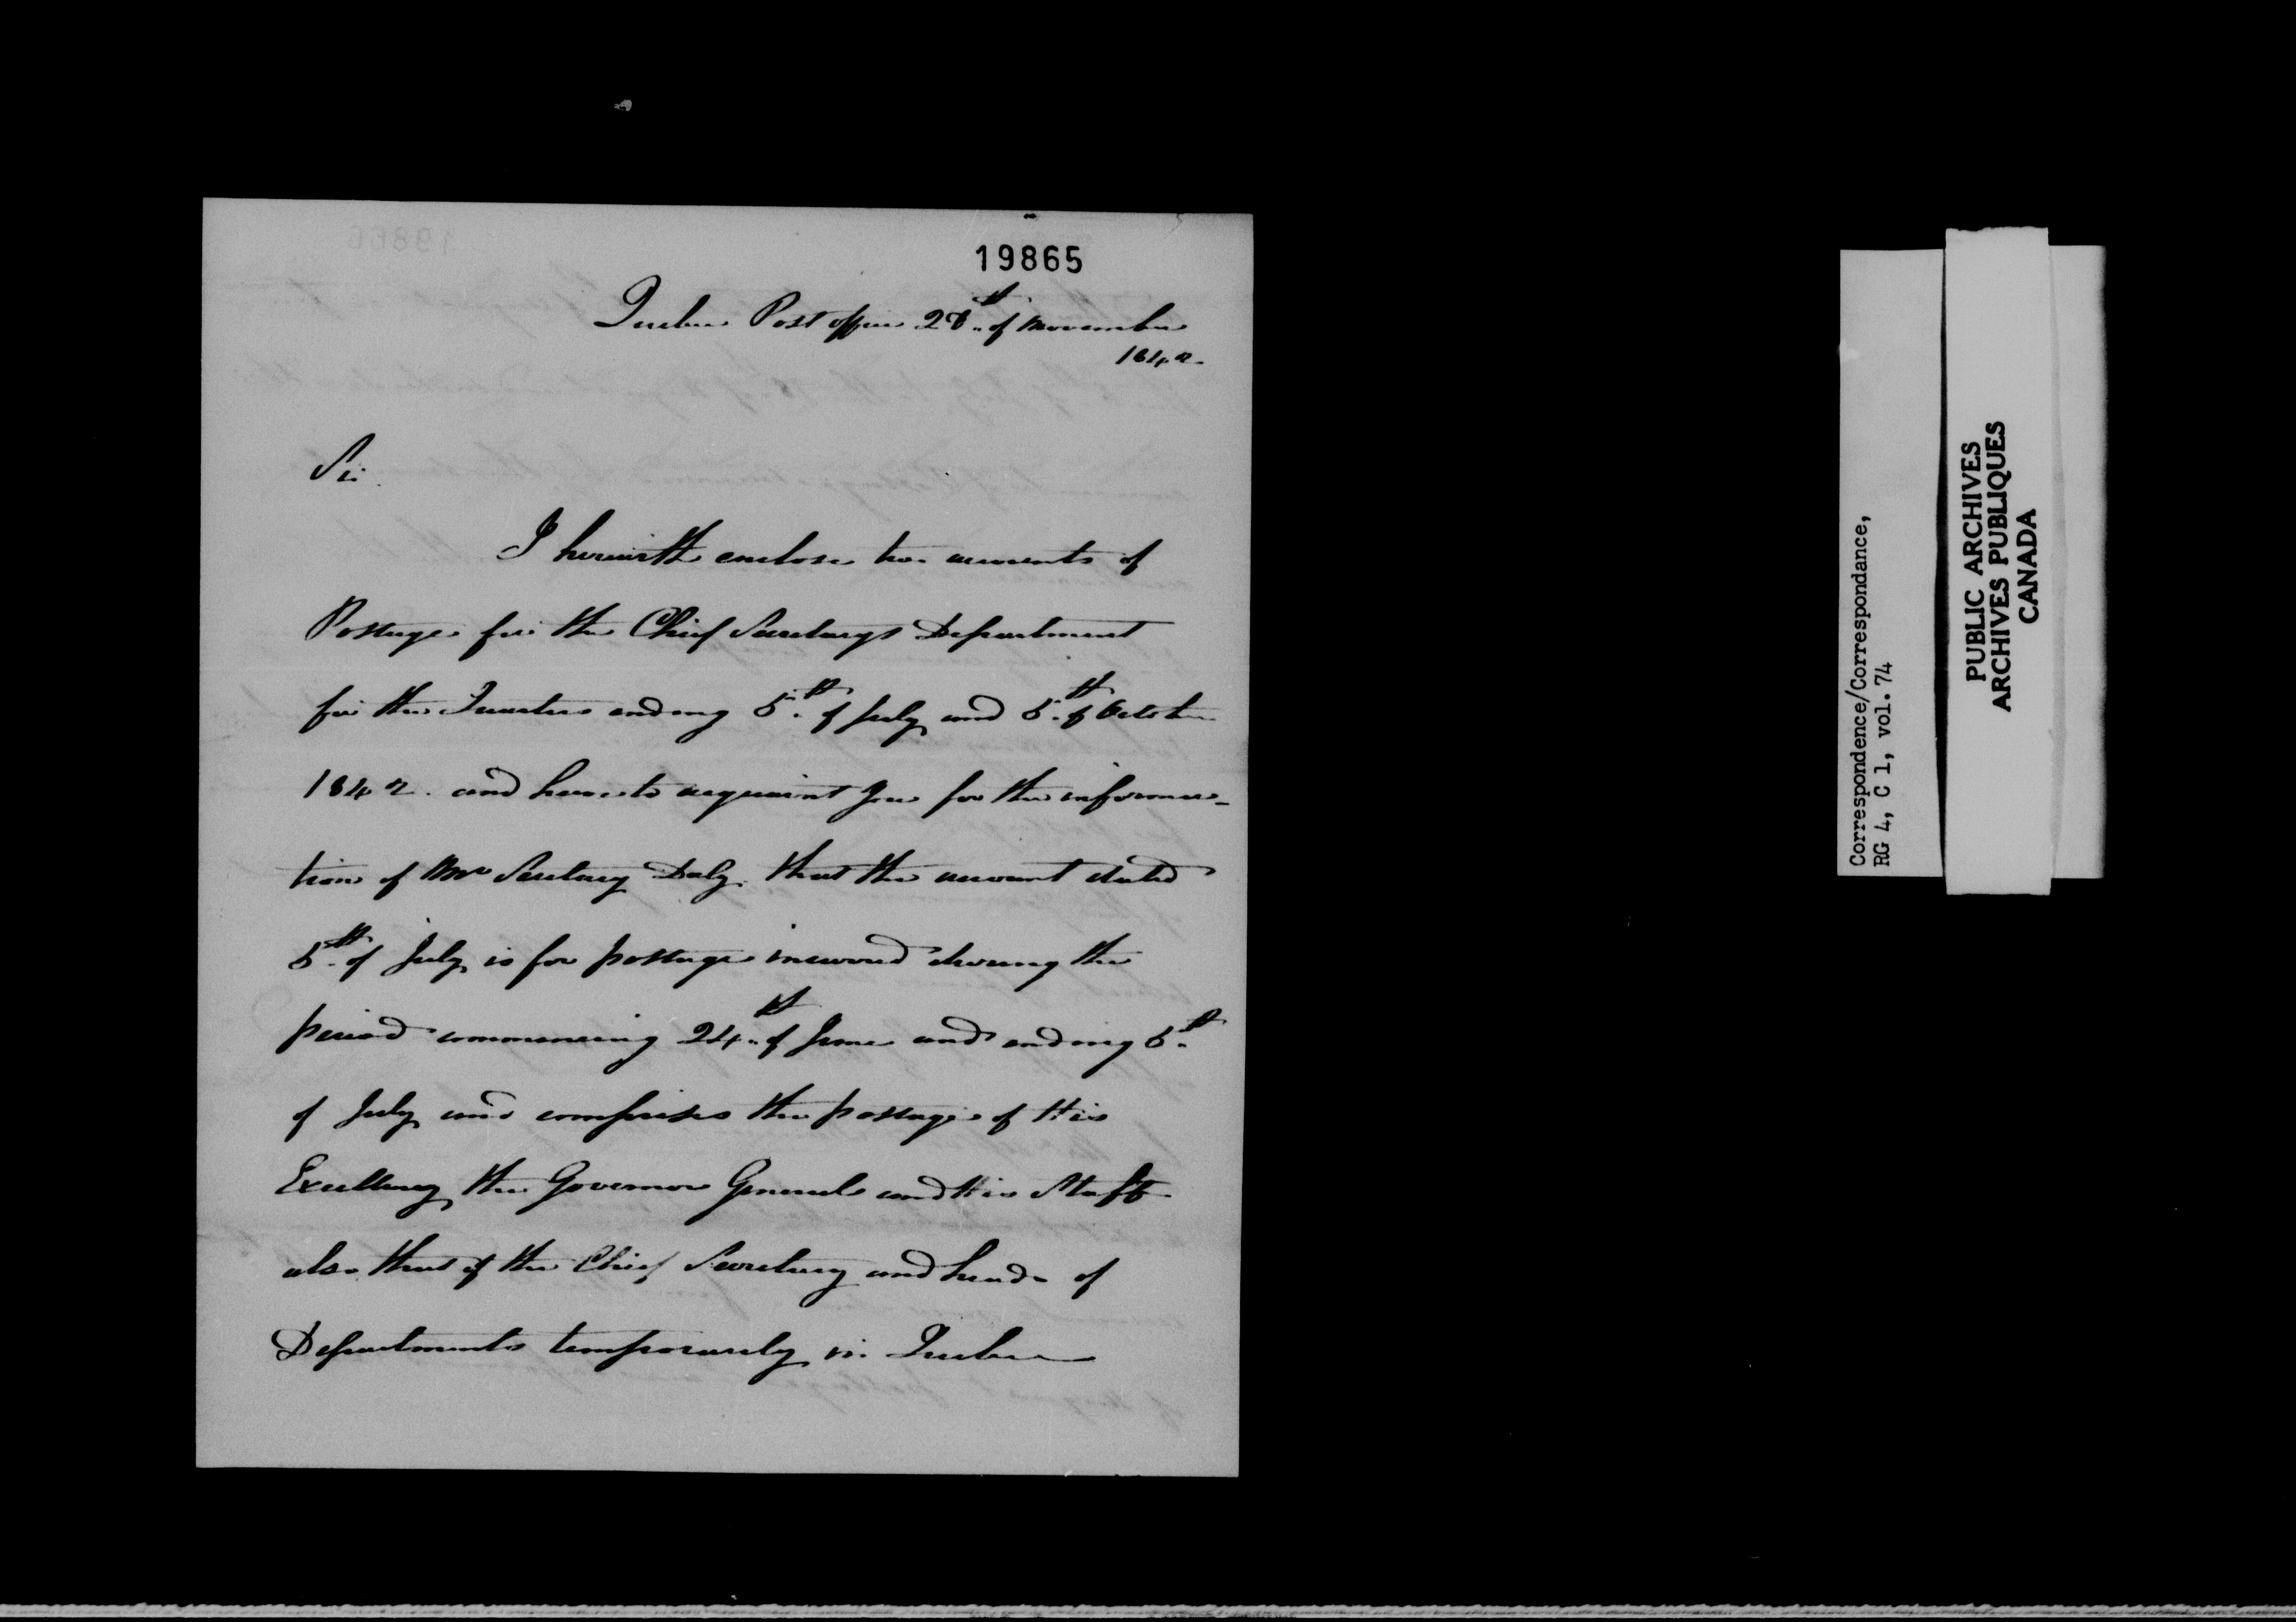 19865
Quebec Post office 28th of November
1842.
Sir
I herewith enclose two accounts of
Postage for the Chief Secretarys Department
for the Quarters ending 5th of July and 5th of October
1842. and have to acquaint you for the informa-
tion of Mr Secretary Daly that the account dated
5th of July is for postage incurred during the
period commencing 24th of June and ending 5th
of July and comprises the postage of His
Excellency the Governor General and His Staff
also that of the Chief Secretary and heads of
Departments temporarily in Quebec
Correspondence/Correspondance,
RG 4, C 1, vol. 74
PUBLIC ARCHIVES
ARCHIVES PUBLIQUES
CANADA